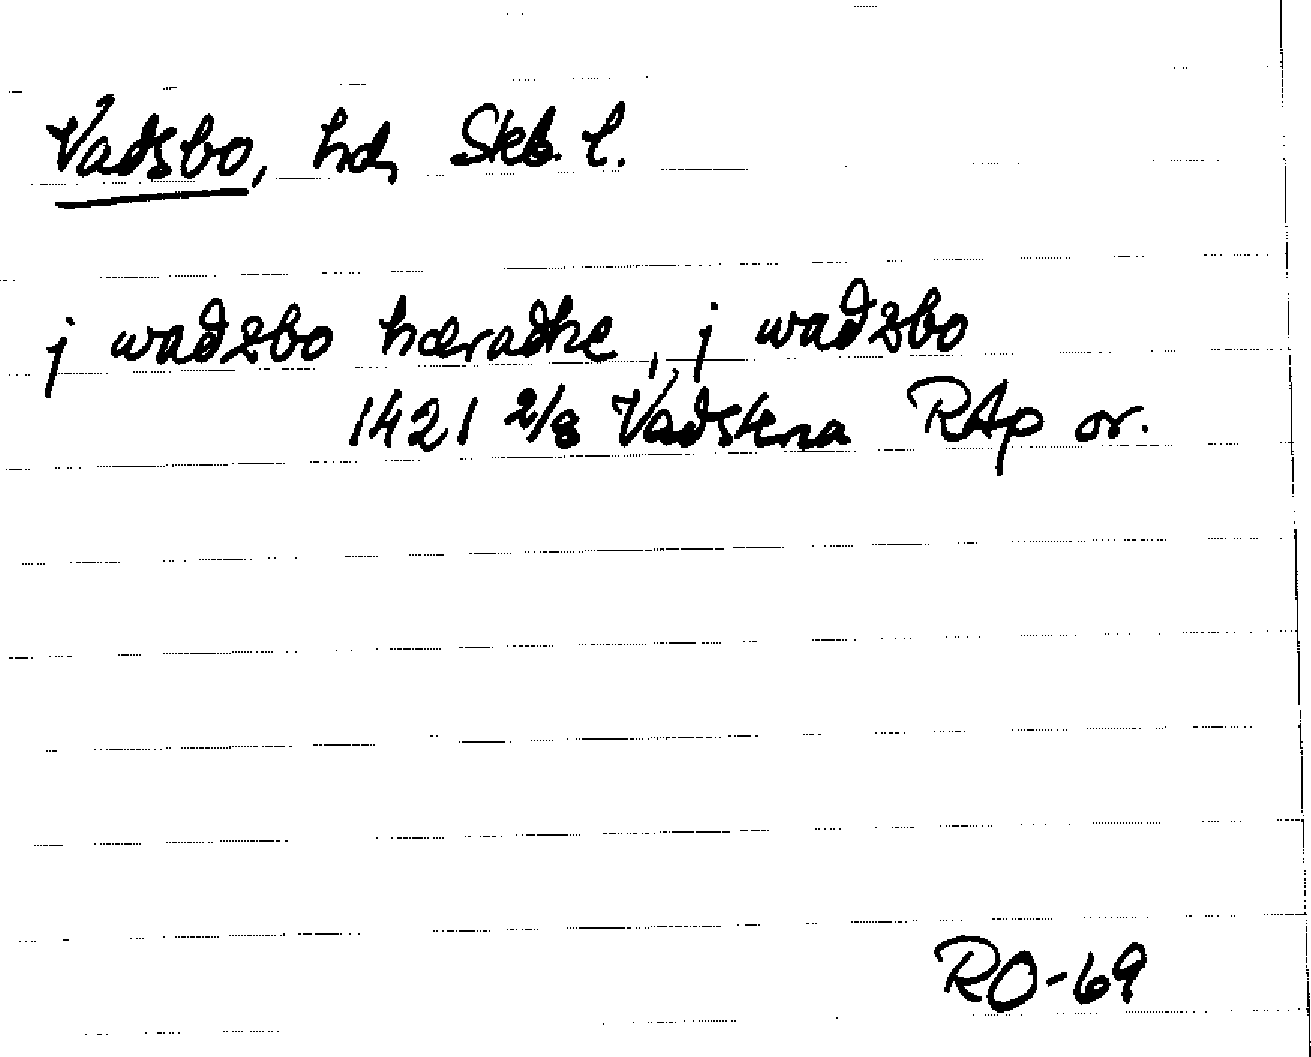 Vadsbo, hd, Skb. l.
j wadzbo hæradhe, j wadzbo
1421 2/8 Vadstena RAp or.
RO-69